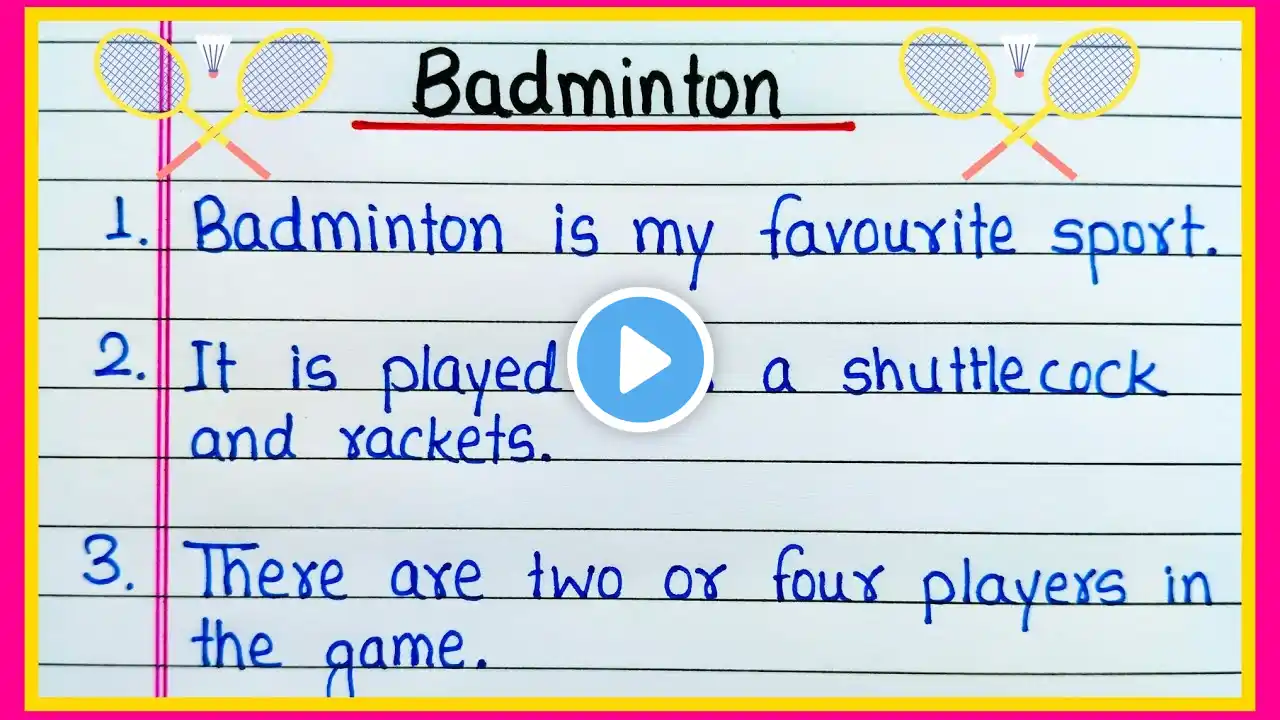 Badminton
1. Badminton is my favourite sport.
2. It is played a shuttlecock
and rackets.
3. There are two or four players in
the game.